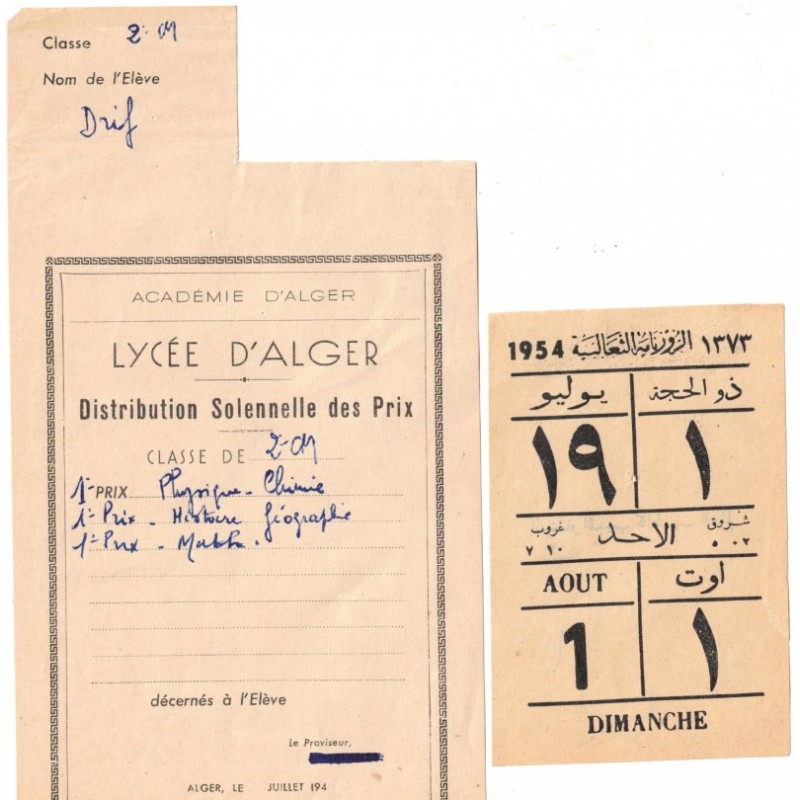 Classe 2e M
Nom de l'Elève
Drif
ACADÉMIE D'ALGER
LYCÉE D'ALGER
Distribution Solennelle des Prix
CLASSE DE 2e M
1er PRIX Physique - Chimie
1er Prix - Histoire Géographie
1er Prix - Math.
décernés à l'Elève
Le Proviseur,
ALGER, LE JUILLET 194
1954 الروزنامة الثعالبية ١٣٧٣
يوليو ذو الحجة
١٩ ١
غروب الاحد شروق
٧ ١٠ ٥ ٠٢
AOUT اوت
1 ١
DIMANCHE